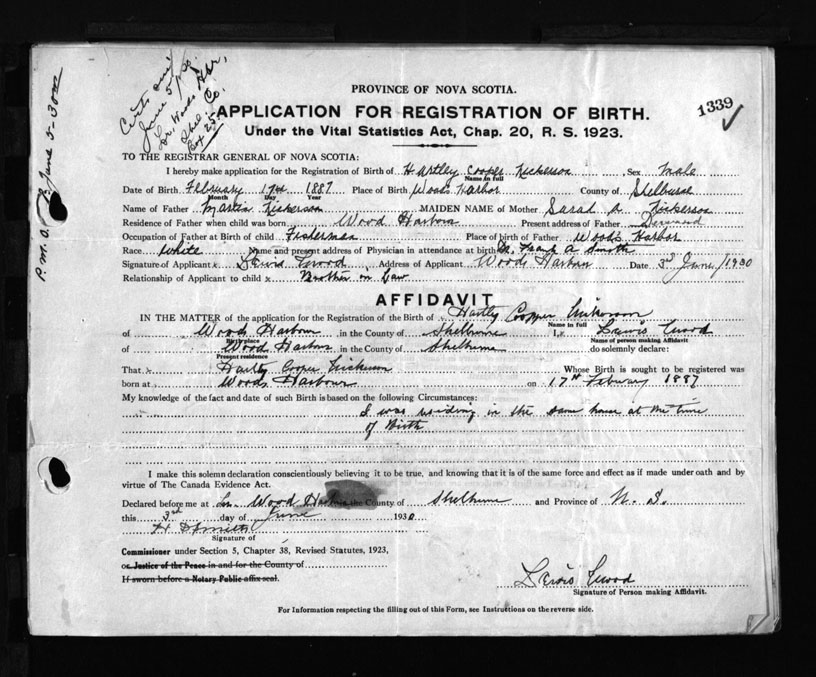 PROVINCE OF NOVA SCOTIA.
1339
APPLICATION FOR REGISTRATION OF BIRTH.
Under the Vital Statistics Act, Chap. 20, R. S. 1923.
Certs
June 5
Woods Hbr,
Shel. Co.
Box 25
P.M.O. June 5-30
TO THE REGISTRAR GENERAL OF NOVA SCOTIA:
I hereby make application for the Registration of Birth of Hartley Cooper Nickerson Sex male
Name in full
Date of Birth February 17th 1887 Place of Birth Woods Harbor County of Shelburne
Month Day Year
Name of Father Martin Nickerson MAIDEN NAME of Mother Sarah A Nickerson
Residence of Father when child was born Wood Harbour Present address of Father Deceased
Occupation of Father at Birth of child Fisherman Place of birth of Father Woods Harbor
Race White Name and present address of Physician in attendance at birth Frank A Smith
Signature of Applicant x Lewis Wood Address of Applicant Woods Harbour Date 3rd June /1930
Relationship of Applicant to child x Brother in Law
AFFIDAVIT
IN THE MATTER of the application for the Registration of the Birth of Hartley Cooper Nickerson
Name in full
of Woods Harbour in the County of Shelburne I, x Lewis Wood
Birthplace Name of person making Affidavit
of Wood Harbour in the County of Shelburne do solemnly declare:
Present residence
That x Hartley Cooper Nickerson Whose Birth is sought to be registered was
born at Woods Harbour on 17th February 1887
My knowledge of the fact and date of such Birth is based on the following Circumstances:
I was residing in the same house at the time
of Birth
I make this solemn declaration conscientiously believing it to be true, and knowing that it is of the same force and effect as if made under oath and by
virtue of The Canada Evidence Act.
Declared before me at Wood Harbour the County of Shelburne and Province of N. S.
this 3rd day of June 1930
Smith
Signature of
Commissioner under Section 5, Chapter 38, Revised Statutes, 1923,
or Justice of the Peace in and for the County of
If sworn before a Notary Public affix seal.
Lewis Wood
Signature of Person making Affidavit.
For Information respecting the filling out of this Form, see Instructions on the reverse side.